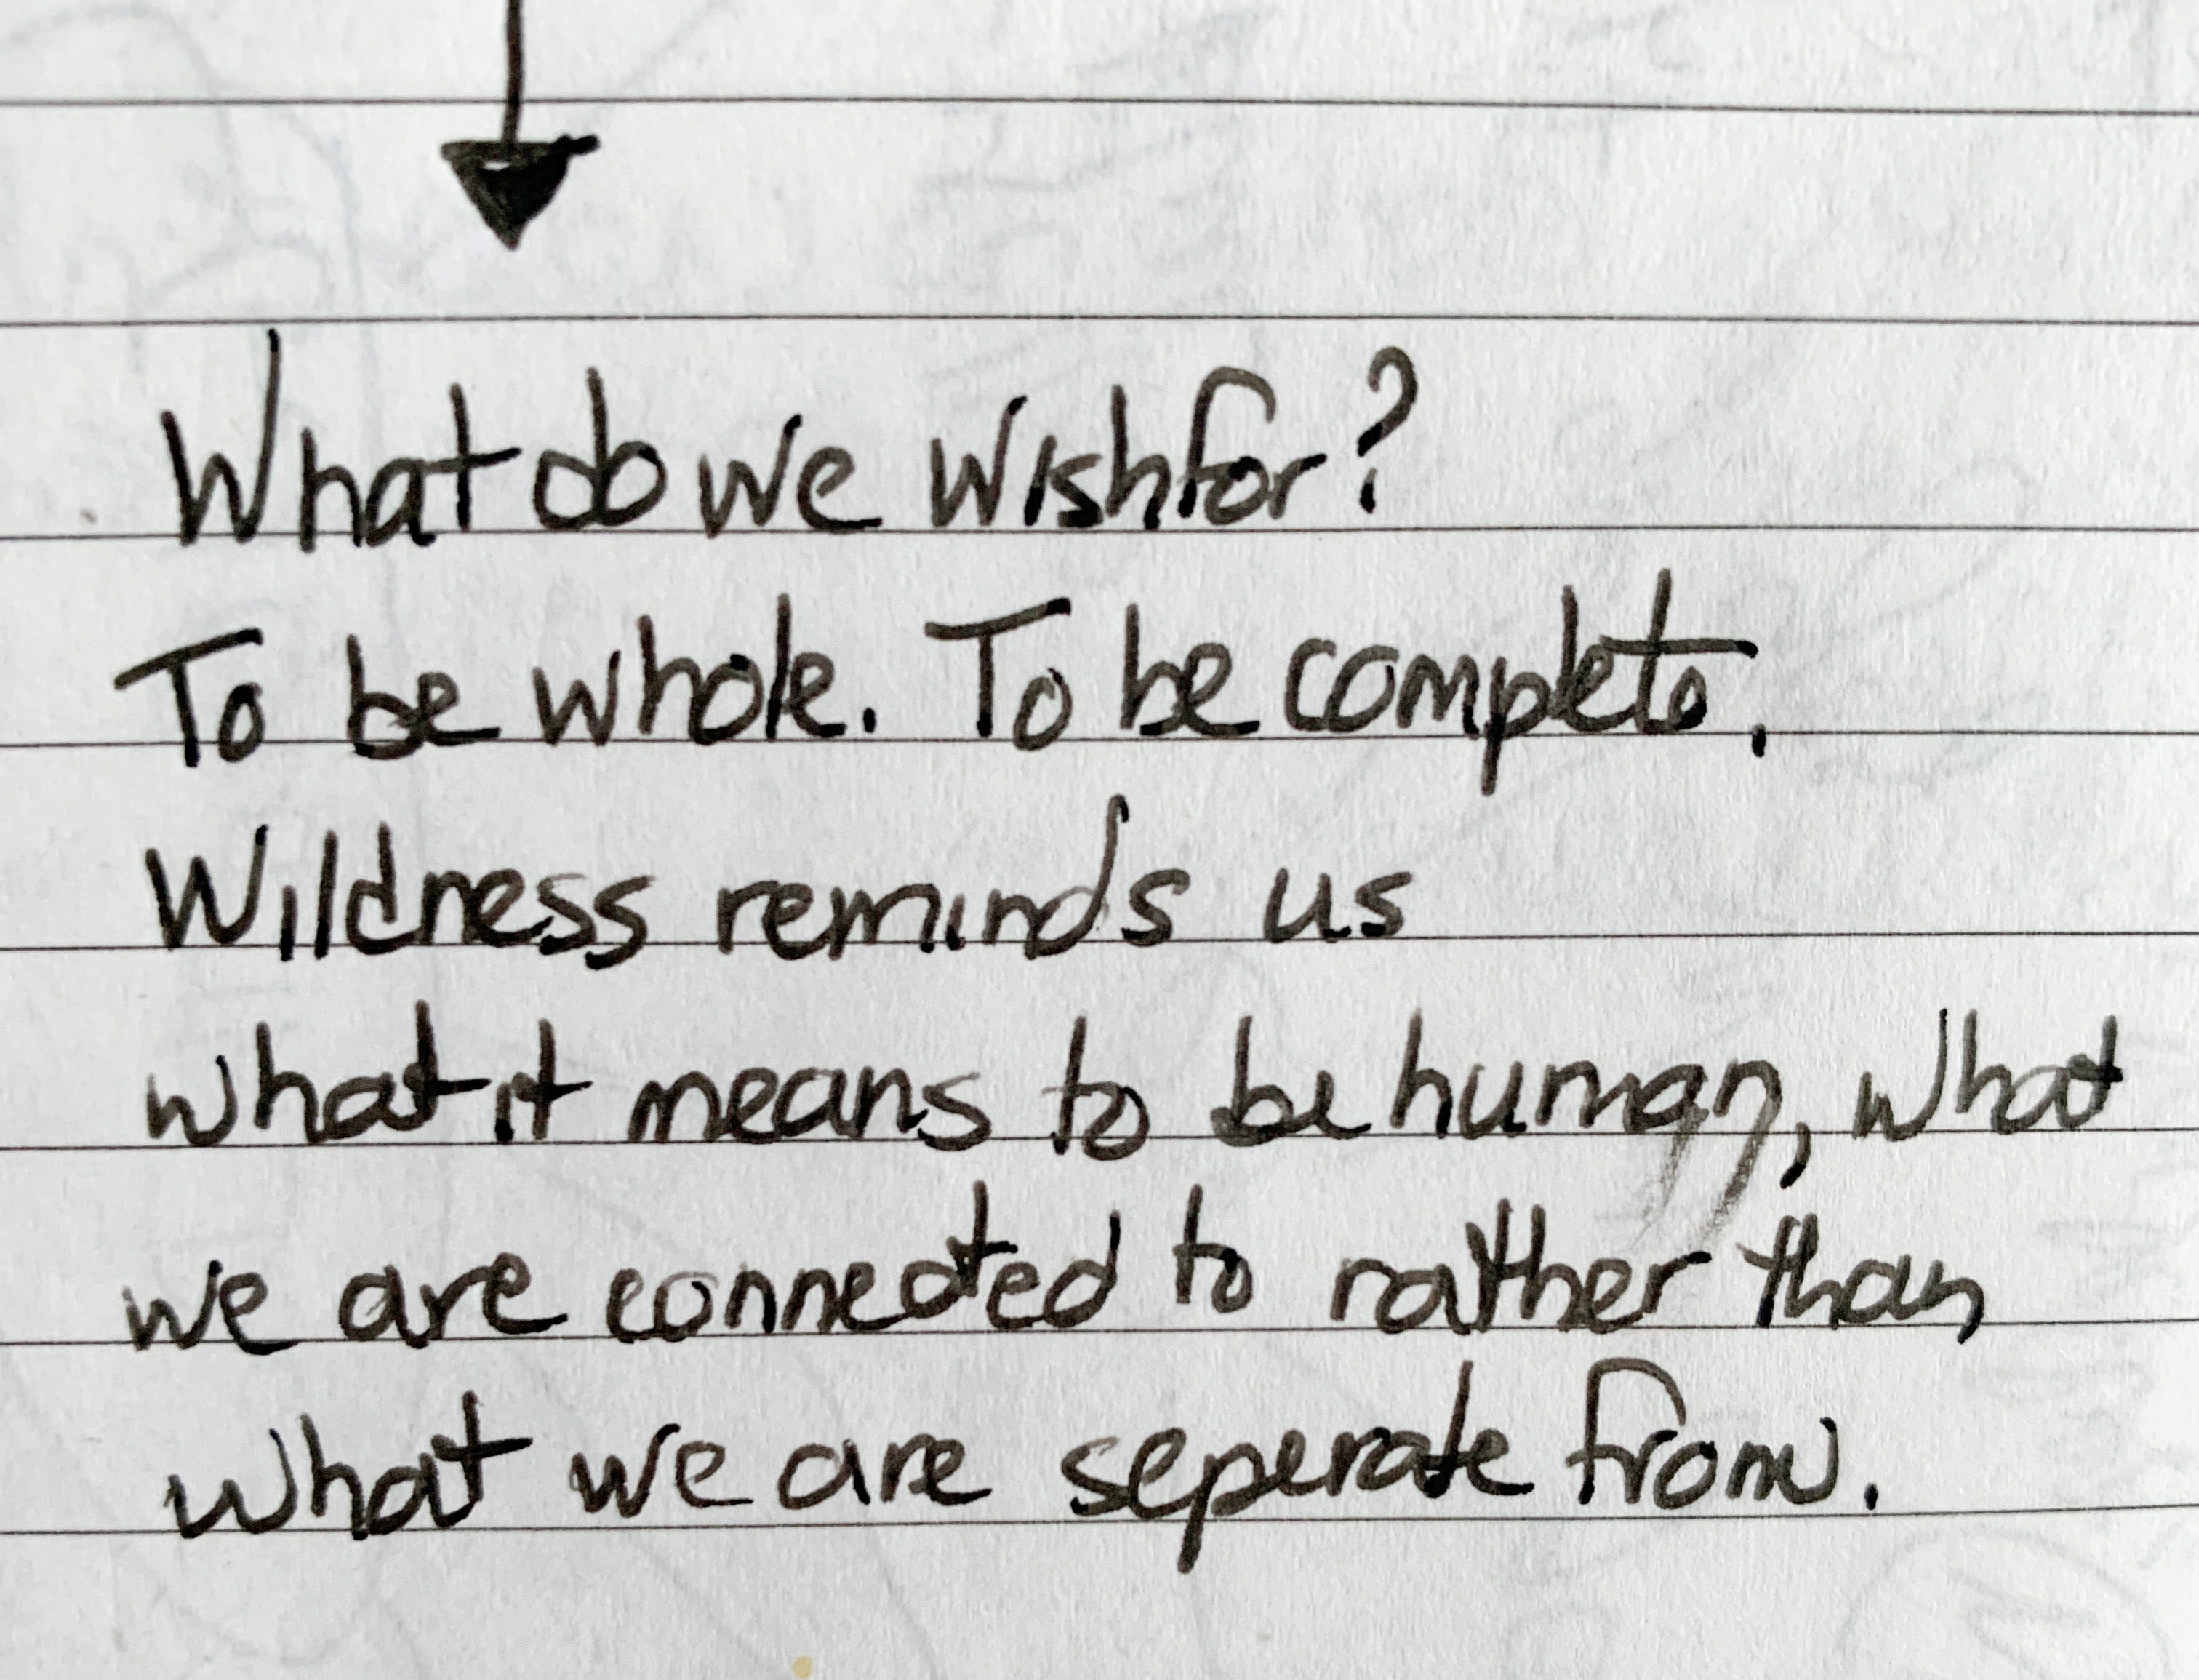 What do we wish for?
To be whole. To be complete.
Wildness reminds us
what it means to be human, what
we are connected to rather than
what we are seperate from.